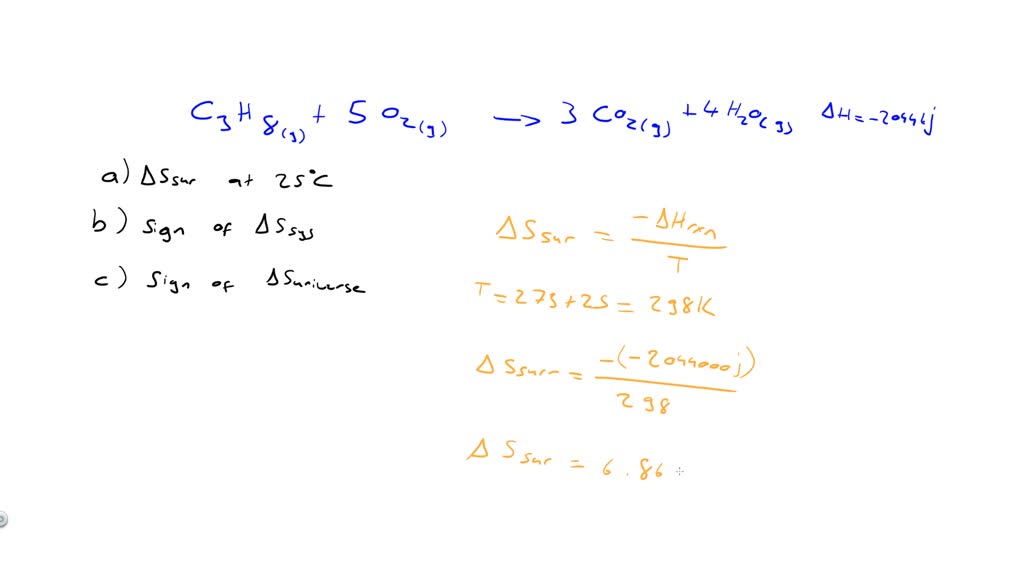 C₃H₈(g) + 5 O₂(g) → 3 CO₂(g) + 4 H₂O(g) ΔH = -2044kj
a) ΔSsur at 25°C
b) Sign of ΔSsys
c) Sign of ΔSuniverse
ΔSsur = -ΔHrxn / T
T = 273 + 25 = 298K
ΔSsurr = -(-2044000j) / 298
ΔSsur = 6.86